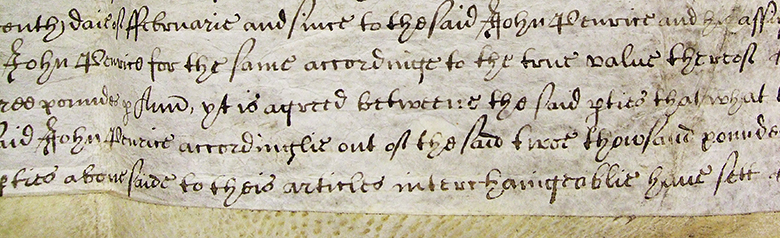 daie of ffebruarie and since to the said John Penrice and his
John Penrice for the same accordinge to the true value thereof
pounde p Annū, yt is agreed betweene the said pties that what
said John Penrice accordinglie out of the said twoe thowsand pounde
pties above saide to theis articles interchaingeablie have sett